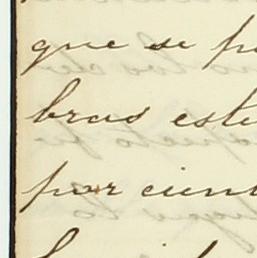 que se p
bras este
por cient